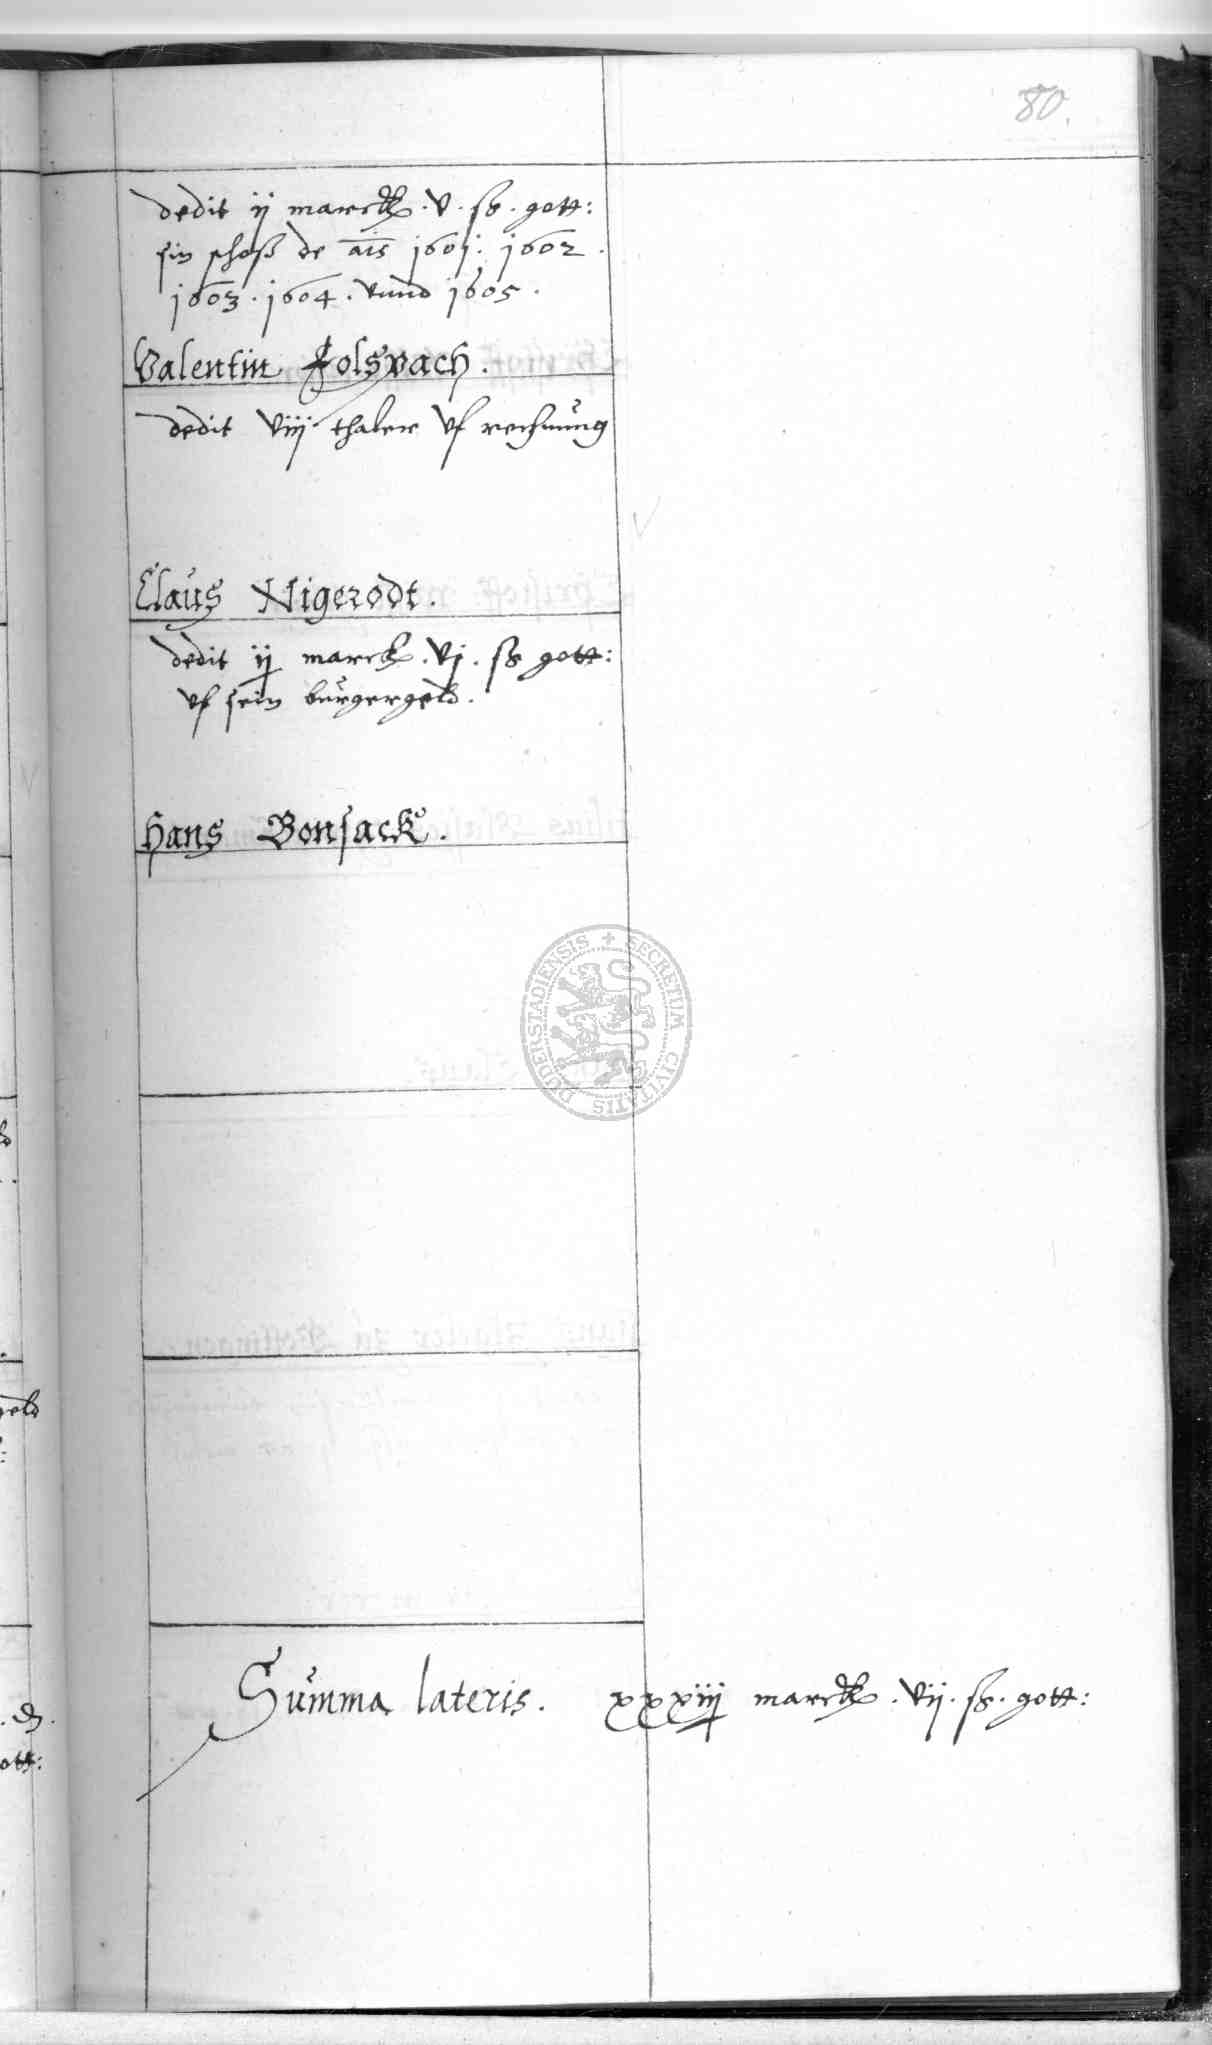 80.
dedit ij marck . v . ß . gott:
sin schoß de ais 1601 . 1602 .
1603 . 1604 . vund 1605 .
Valentin Folspach .
dedit viij thaler vf rechnung
Claus Nigerodt .
dedit ij marck . vj . ß gott:
vf sein burgergeld .
Hans Bonsack .
DUDERSTADIENSIS + SECRETUM CIVITATIS
Summa lateris . xxxiij marck . vij . ß . gott: